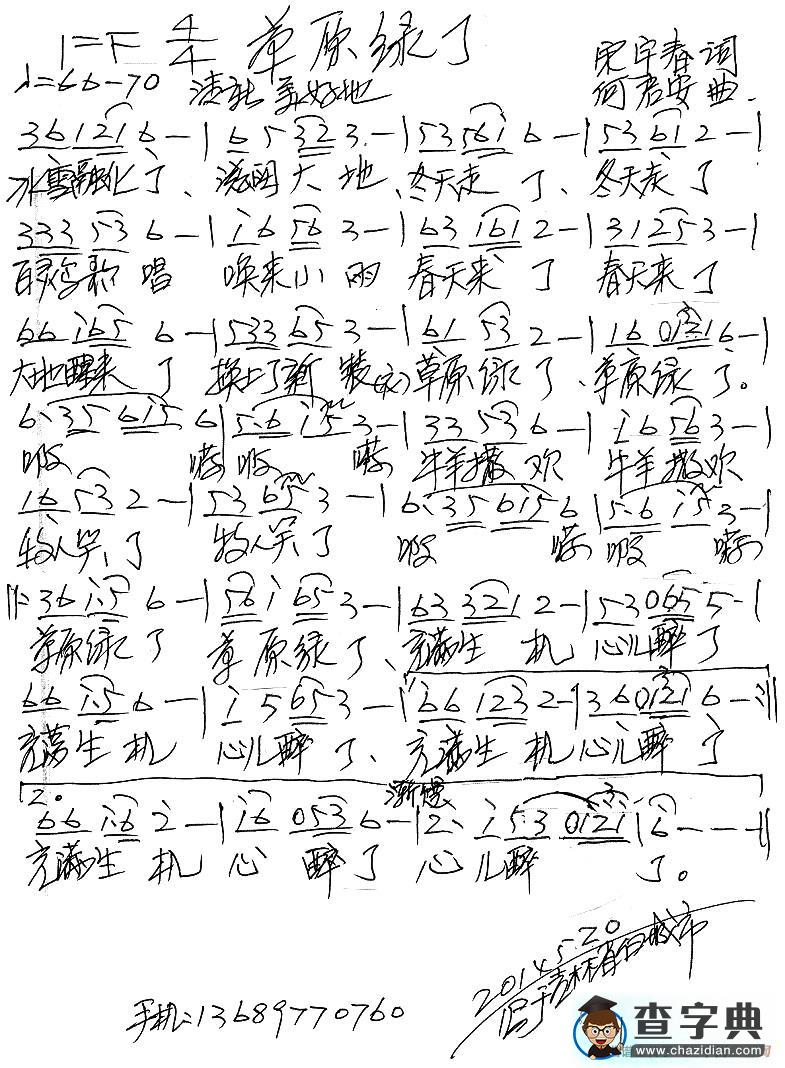 1=F 4/4 草原绿了
宋宇春 词
♩=66-70 清新 美好地
何君安 曲
3 6 1 2 1 6 - | 6 5 3 2 3 - | 5 3 5 6 1 6 - | 5 3 6 1 2 - |
冰雪融化了、滋润大地、冬天走了、冬天走了
3 3 3 5 3 6 - | i 6 5 6 3 - | 6 3 1 6 1 2 - | 3 1 2 5 3 - |
百灵鸟歌唱 唤来小雨 春天来了 春天来了
6 6 i 6 5 6 - | 5 3 3 6 5 3 - | 6 1 5 3 2 - | 1 6 0 1 2 1 6 - |
大地醒来了 换上了新装 草原绿了、草原绿了。
6· 3 5 6 i 5 6 | 5· 6 i 5 3 - | 3 3 5 3 6 - | i 6 5 6 3 - |
牛羊撒欢 牛羊撒欢
1 6 5 3 2 - | 5 3 6 5 3 - | 6· 3 5 6 i 5 6 | 5· 6 i 5 3 - |
牧人笑了 牧人笑了
‖: 3 6 i· 5 6 - | 5 6 i 6 5 3 - | 6 3 3 2 1 2 - | 5 3 0 6 5 5 - |
草原绿了 草原绿了、充满生机 心儿醉了
6 6 i· 5 6 - | i 5 6 5 3 - | 6 6 1 2 3 2 - | 3 6 0 1 2 1 6 - :‖
充满生机 心儿醉了、充满生机 心儿醉了
2。 渐慢
6 6 i· 6 2 - | i 6 0 5 3 6 - | 2· i 5· 3 0 1 2 i | 6 - - - ‖
充满生机 心醉了 心儿醉了。
2014.5.20
于吉林省白城市
手机:13689770760
查字典
www.chazidian.com